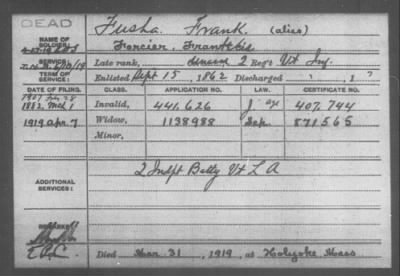 DEAD
NAME OF SOLDIER:
Fusha, Frank. (alias)
Forcier, Francois
SERVICE:
Late rank, 2 Reg't Vt Inf.
TERM OF SERVICE:
Enlisted Sept 15, 1862 Discharged , 1 ?
DATE OF FILING. CLASS. APPLICATION NO. LAW. CERTIFICATE NO.
1907 28
1882 Mch 1 Invalid, 441.626 J 407.744
1919 Apr. 7 Widow, 1138988 Sep. 871565
Minor,
ADDITIONAL SERVICES:
2 Indpt Batty Vt L A
REMARKS:
Died Mar. 31, 1919, at Holyoke Mass